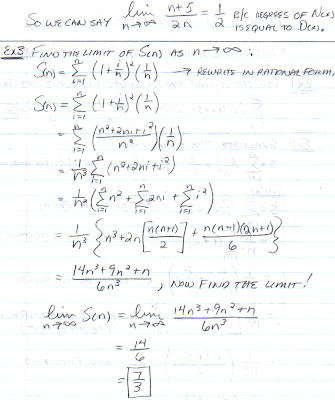 So we can say lim n→∞ n+5/2n = 1/2 b/c degrees of N(x) is equal to D(x).
Ex3: Find the limit of S(n) as n→∞:
S(n) = Σ i=1 n (1+i/n)² (1/n) → rewrite in rational form,
S(n) = Σ i=1 n (1+i/n)² (1/n)
= Σ i=1 n (n²+2ni+i²/n²)(1/n)
= 1/n³ Σ i=1 n (n²+2ni+i²)
= 1/n³ (Σ i=1 n n² + Σ i=1 n 2ni + Σ i=1 n i²)
= 1/n³ {n³+2n[n(n+1)/2] + n(n+1)(2n+1)/6}
= 14n³+9n²+n/6n³ , now find the limit!
lim n→∞ S(n) = lim n→∞ 14n³+9n²+n/6n³
= 14/6
= 7/3